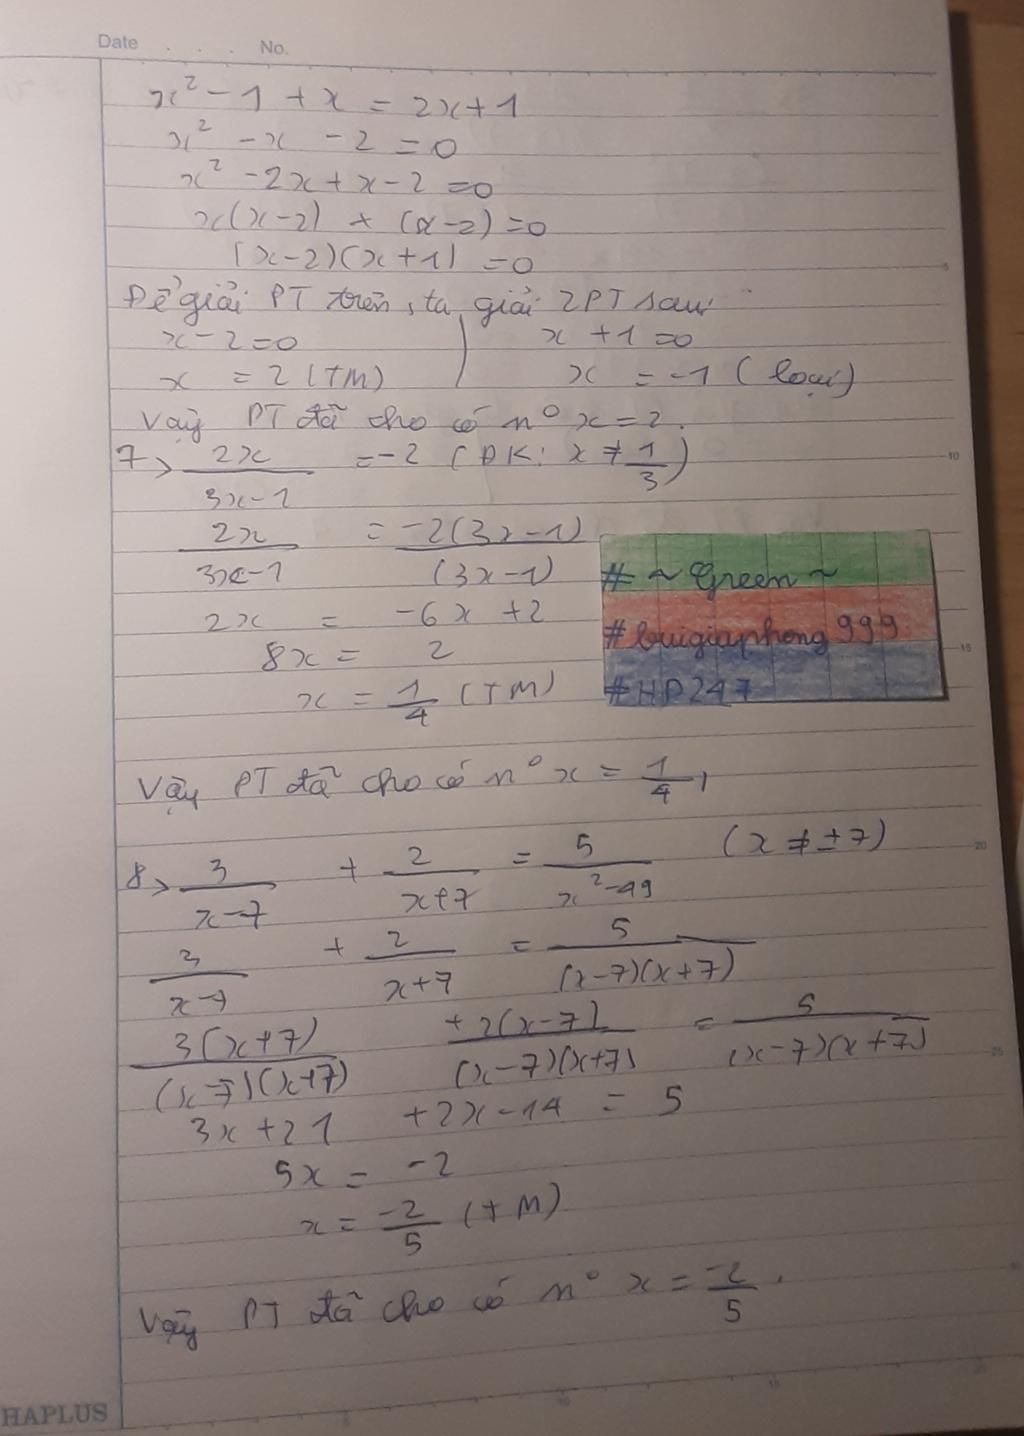 Date . . . No.
x² - 1 + x = 2x + 1
x² - x - 2 = 0
x² - 2x + x - 2 = 0
x(x-2) + (x-2) = 0
(x-2)(x+1) = 0
Để giải PT trên, ta giải 2PT sau:
x - 2 = 0 | x + 1 = 0
x = 2 (TM) | x = -1 (loại)
Vậy PT đã cho có n° x = 2.
7> 2x/(3x-1) = -2 (ĐK: x ≠ 1/3)
2x/(3x-1) = -2(3x-1)/(3x-1)
2x = -6x + 2
8x = 2
x = 1/4 (TM)
# ~ Green ~
# buigiaphong 999
# HP247
Vậy PT đã cho có n° x = 1/4,
8> 3/(x-7) + 2/(x+7) = 5/(x²-49) (x ≠ ±7)
3/(x-7) + 2/(x+7) = 5/((x-7)(x+7))
3(x+7)/((x-7)(x+7)) + 2(x-7)/((x-7)(x+7)) = 5/((x-7)(x+7))
3x + 21 + 2x - 14 = 5
5x = -2
x = -2/5 (TM)
Vậy PT đã cho có n° x = -2/5.
HAPLUS